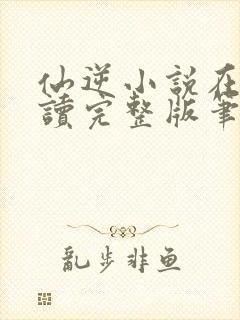 仙逆小說在
讀完整版筆
亂步非鱼